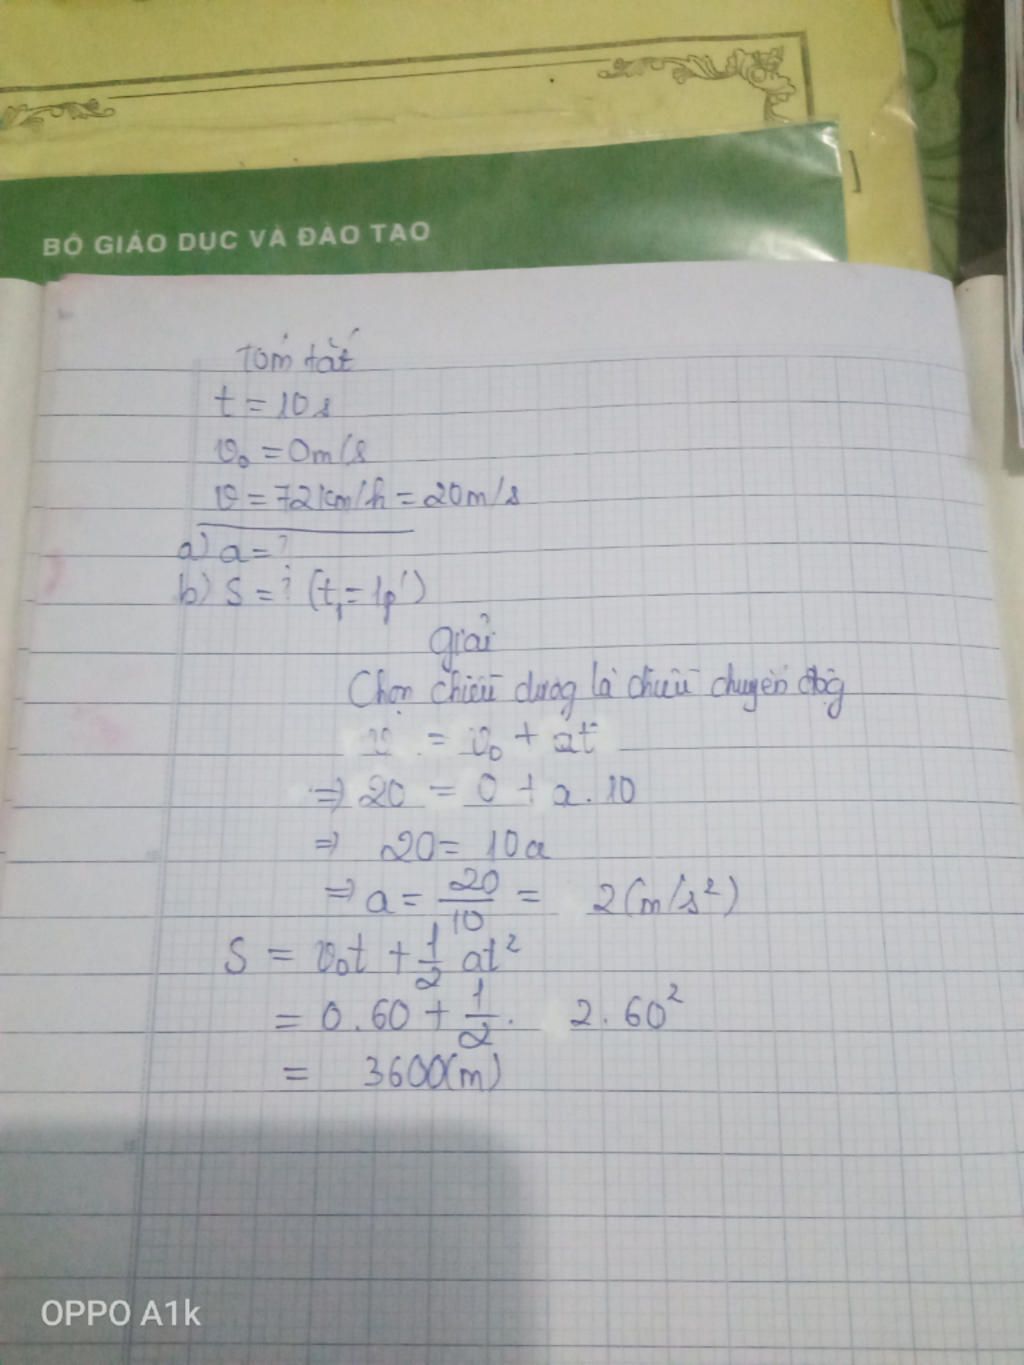 BỘ GIÁO DỤC VÀ ĐÀO TẠO
Tóm tắt
t = 10s
v₀ = 0m/s
v = 72km/h = 20m/s
a) a = ?
b) S = ? (t₁ = 1p')
Giải
Chọn chiều dương là chiều chuyển động
v = v₀ + at
⇒ 20 = 0 + a . 10
⇒ 20 = 10a
⇒ a = 20/10 = 2(m/s²)
S = v₀t + 1/2 at²
= 0 . 60 + 1/2 . 2 . 60²
= 3600(m)
OPPO A1k